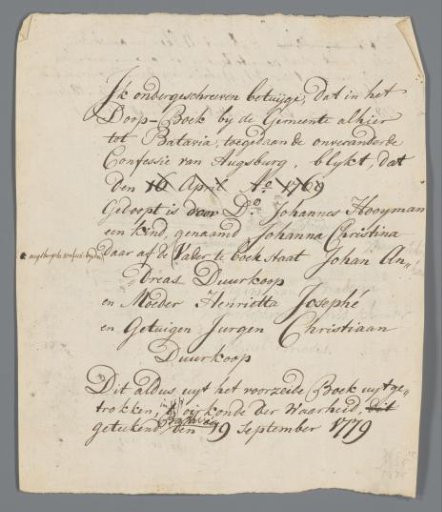 Ik ondergeschreeven betuijge, dat in het
Doop-Boek bij de Gemeente alhier
tot Batavia, toegedaan de onveranderde
Confessie van Augsburg, blykt, dat
den 16 April Ao 1769
Gedoopt is door Do. Johannes Hooyman
een kind, genaamd Johanna Christina
daar af de Vader te boek staat Johan An„
„dreas Duurkoop
en Moeder Henrietta Josephé
en Getuigen Jurgen Christiaan
Duurkoop
Dit aldus uyt het voorzeide Boek uytge„
trokken, oirkonde der Waarheid, dit
getekend Batavia den 19 September 1779